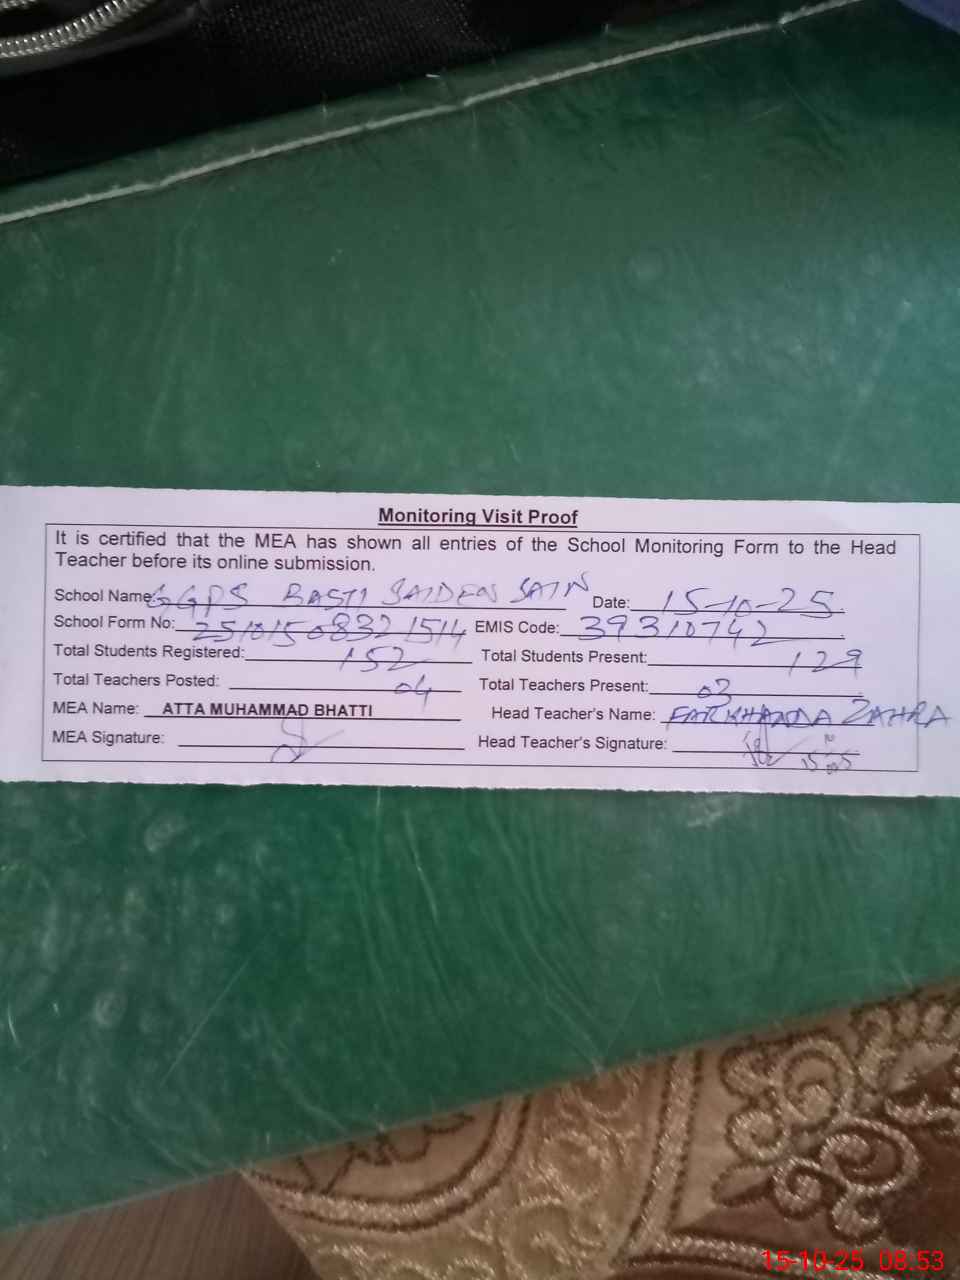 Monitoring Visit Proof
It is certified that the MEA has shown all entries of the School Monitoring Form to the Head
Teacher before its online submission.
School Name: GGPS BASTI SAIDEN SAIN Date: 15-10-25
School Form No: 2510150832 1514 EMIS Code: 39310742
Total Students Registered: 152 Total Students Present: 129
Total Teachers Posted: 04 Total Teachers Present: 03
MEA Name: ATTA MUHAMMAD BHATTI Head Teacher's Name: FARKHANDA ZAHRA
MEA Signature: Head Teacher's Signature:
15-10-25 08:53